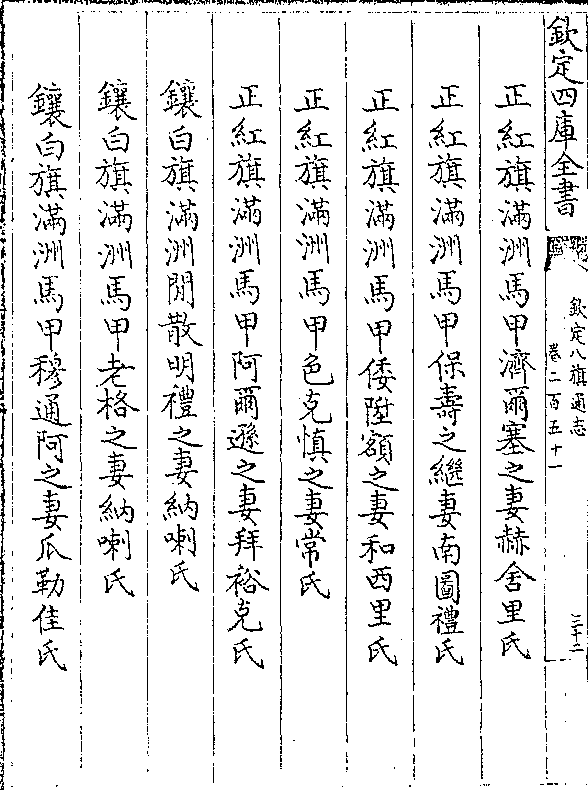 欽定四庫全書
欽定八旗通志
卷二百五十一
三十二
正紅旗滿洲馬甲濟爾塞之妻赫舍里氏
正紅旗滿洲馬甲保壽之繼妻南圖禮氏
正紅旗滿洲馬甲倭陞額之妻和西里氏
正紅旗滿洲馬甲色克慎之妻常氏
正紅旗滿洲馬甲阿爾遜之妻拜裕克氏
鑲白旗滿洲閒散明禮之妻納喇氏
鑲白旗滿洲馬甲老格之妻納喇氏
鑲白旗滿洲馬甲穆通阿之妻瓜勒佳氏